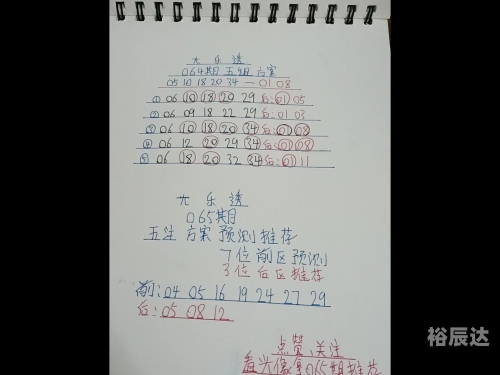 大 乐 透
064期 五组 方案
05 10 18 20 34 — 01 08
① 06 10 18 20 29 后:01 05
② 06 09 18 22 29 后:01 03
③ 06 10 18 20 34 后:01 08
④ 06 12 20 29 34 后:01 08
⑤ 06 18 20 32 34 后:01 11
大 乐 透
065期
五注 方案 预测 推荐
7位 前区 预测
3位 后区 推荐
前: 04 05 16 19 24 27 29
后: 05 08 12
点赞、关注
看头像享065期推荐
裕辰达